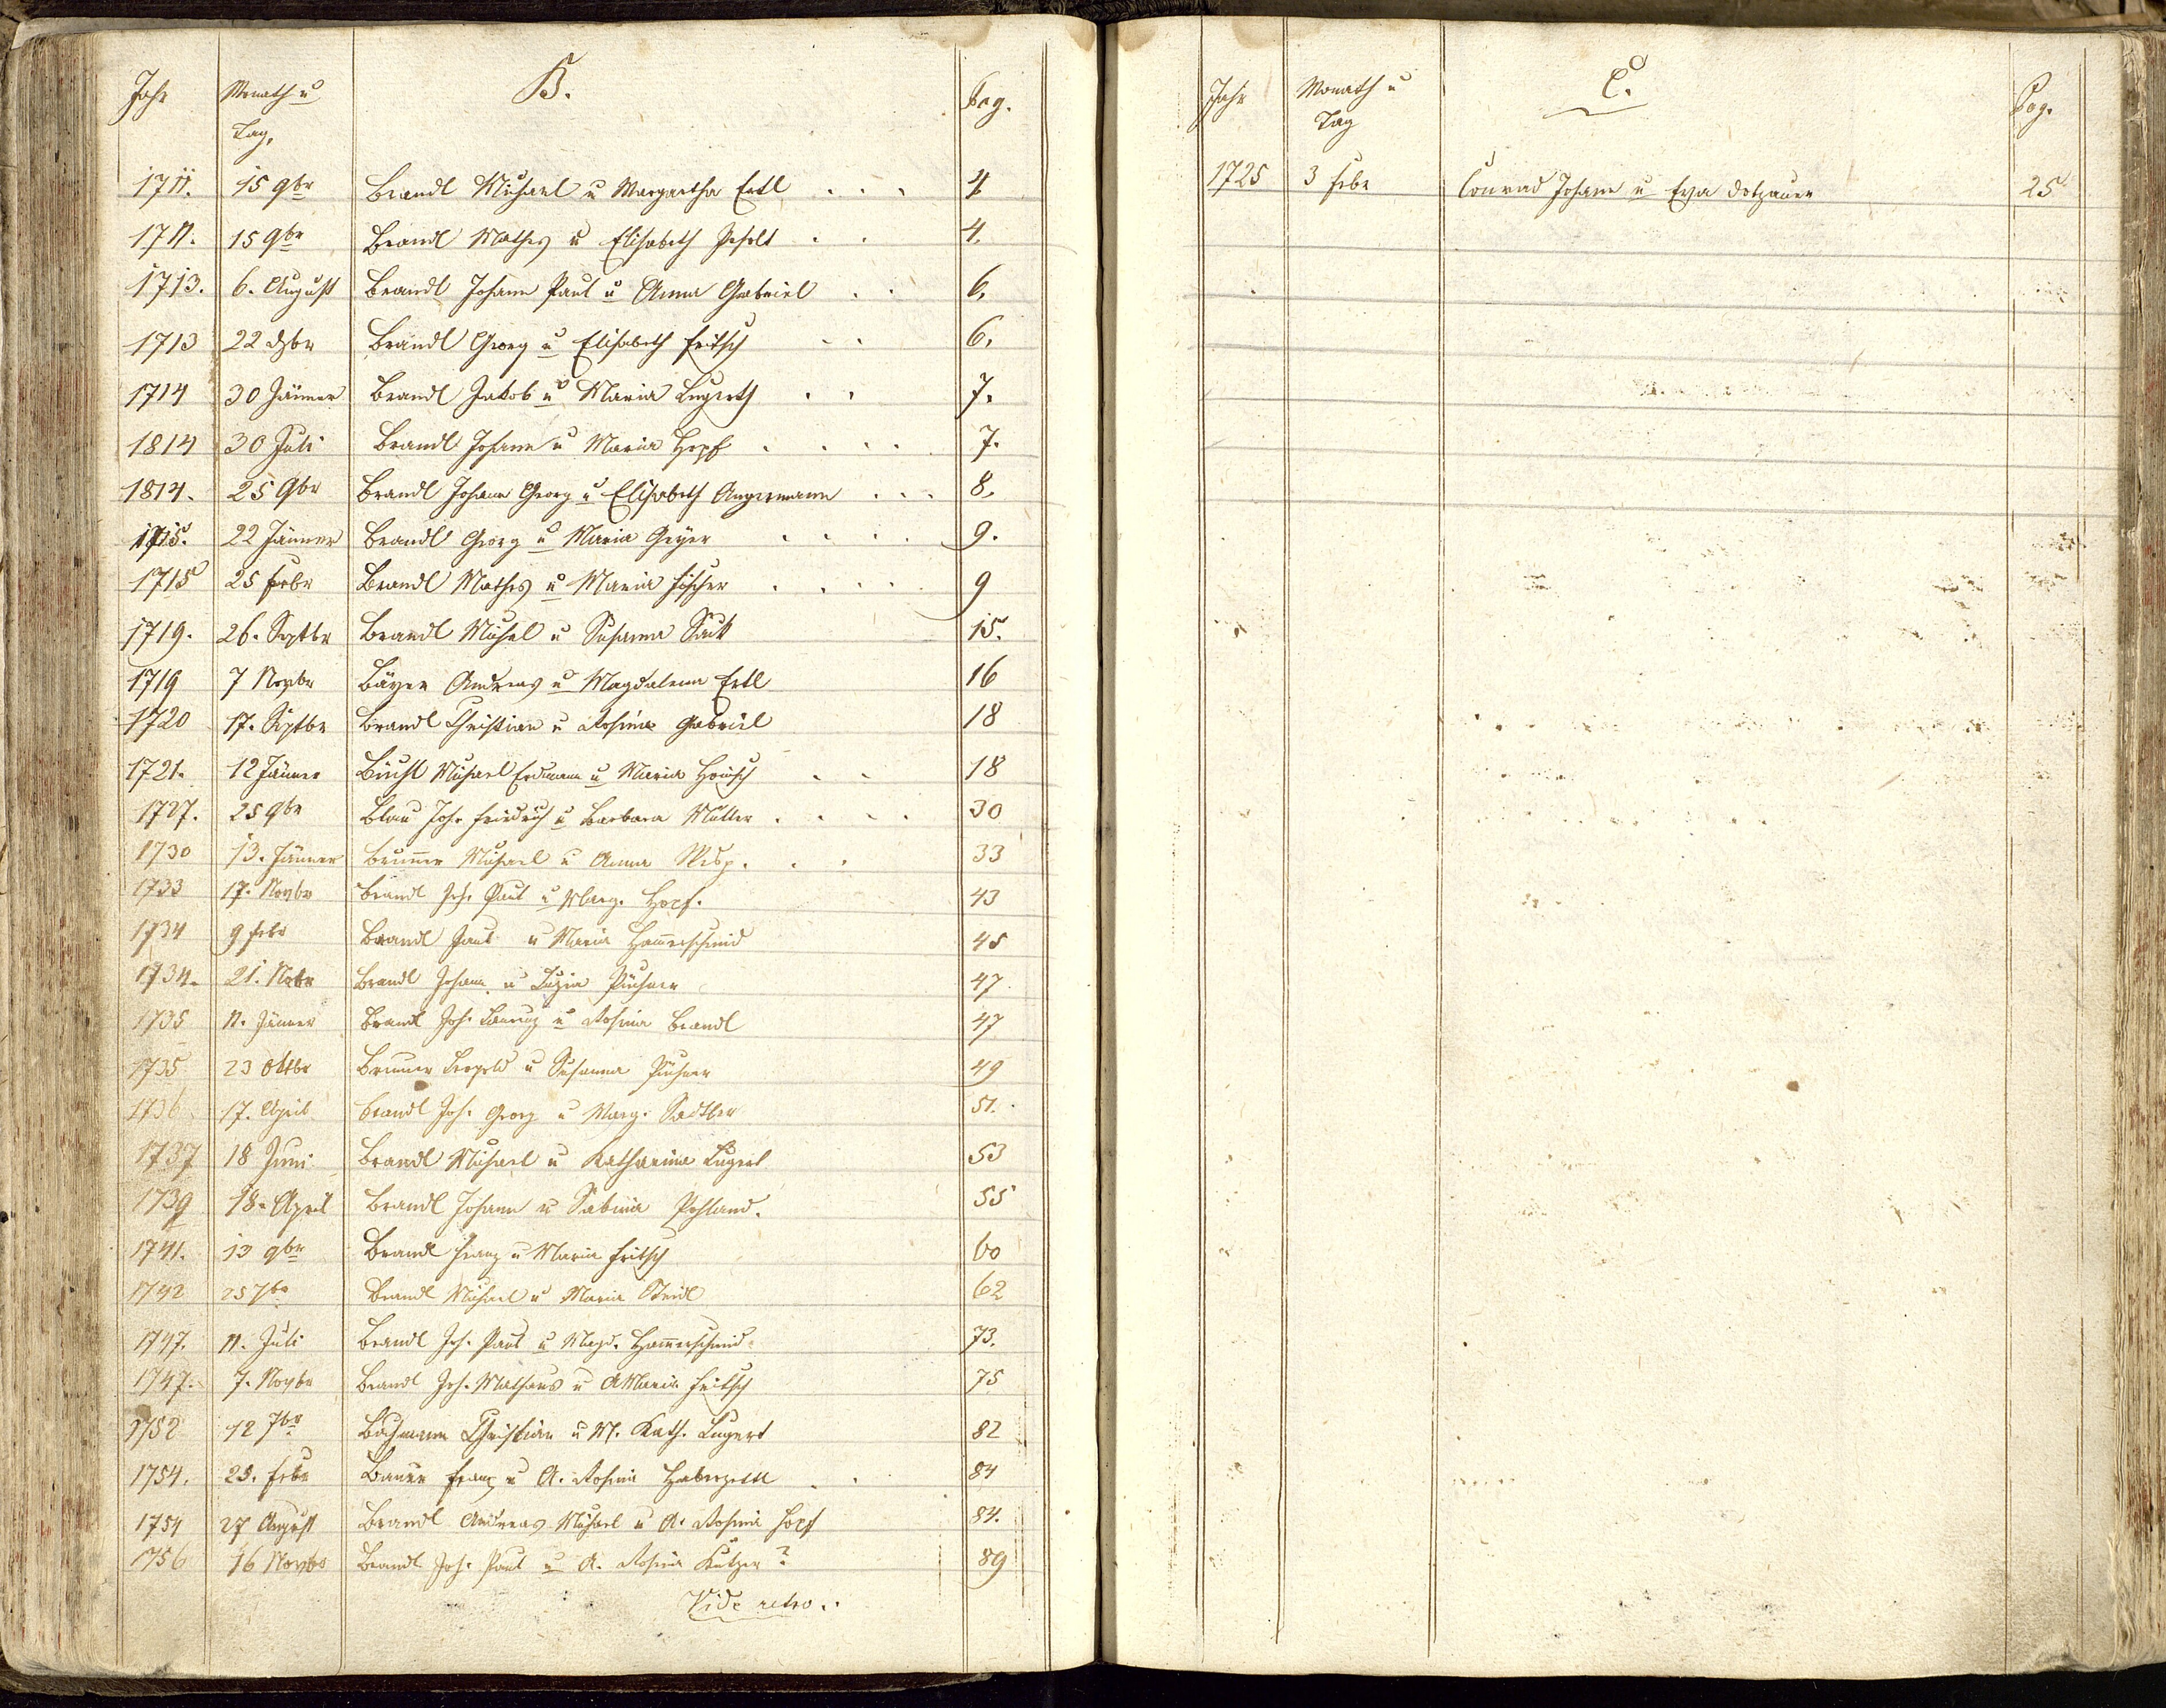 Jahr Monath u Tag, B. Pag.
1711. 15 9br Brandl Michael u Margaretha Ertl . . . 4
1711. 15 9br Brandl Mathes u Elisabeth . . 4.
1713. 6. August Brandl Johann Paul u Anna Gabriel . . 6.
1713 22 Brandl Georg u Elisabeth Fritsch . . 6.
1714 30 Jänner Brandl Jakob u Maria Lugerth . . 7.
1814 30 Juli Brandl Johann u Maria Hopf . . . . 7.
1814. 25 9br Brandl Johann Georg u Elisabeth Angermann . . . 8.
1715. 22 Jänner Brandl Georg u Maria Geyer . . . . 9.
1715 25 Febr Brandl Mathes u Maria Fischer . . . . 9
1719. 26. Septbr Brandl Michel u Susanna Sack 15.
1719 7 Novbr Bäyer Andreas u Magdalena Ertl 16
1720 17. Septbr Brandl Christian u Rosina Gabriel 18
1721. 12 Jänner Michael Erdmann u Maria . . 18
1727. 25 9br Blau Joh. Friedrich u Barbara Müller . . . . 30
1730 13. Jänner Brunner Michael u Anna . . . 33
1733 17. Novbr Brandl Joh. Paul u Marg. Hopf. 43
1734 9 Febr Brandl Paul u Maria Hammerschmid 45
1734. 21. Nobr Brandl Johann u Luzia Püchner 47
1735 11. Jänner Brandl Joh. Lorenz u Rosina Brandl 47
1735 23 Oktbr Brunner Leopold u Susanna Püchner 49
1736 17. April Brandl Joh. Georg u Marg. Sattler 51.
1737 18 Juni Brandl Michael u Katharina Lugert 53
1739 18. April Brandl Johann u Sabina Pohland. 55
1741. 13 9br Brandl Franz u Maria Fritsch 60
1742 25 7br Brandl Michael u Maria Steidl 62
1747. 11. Juli Brandl Joh. Paul u Magd. Hammerschmid 73.
1747. 7. Novbr Brandl Joh. Mathaus u AMaria Fritsch 75
1752 12 7br Bachmann Christian u M. Kath. Lugert 82
1754. 25. Febr Bauer Franz u A. Rosina Haberzettl . . 84
1754 27 August Brandl Andreas Michael u A. Rosina Hopf 84.
1756 16 Novbr Brandl Joh. Paul u A. Rosina Kutzer ? 89
Vide retro..
Jahr Monath u Tag C. Pag.
1725 3 Febr Conrad Johann u Eva Dotzauer 25